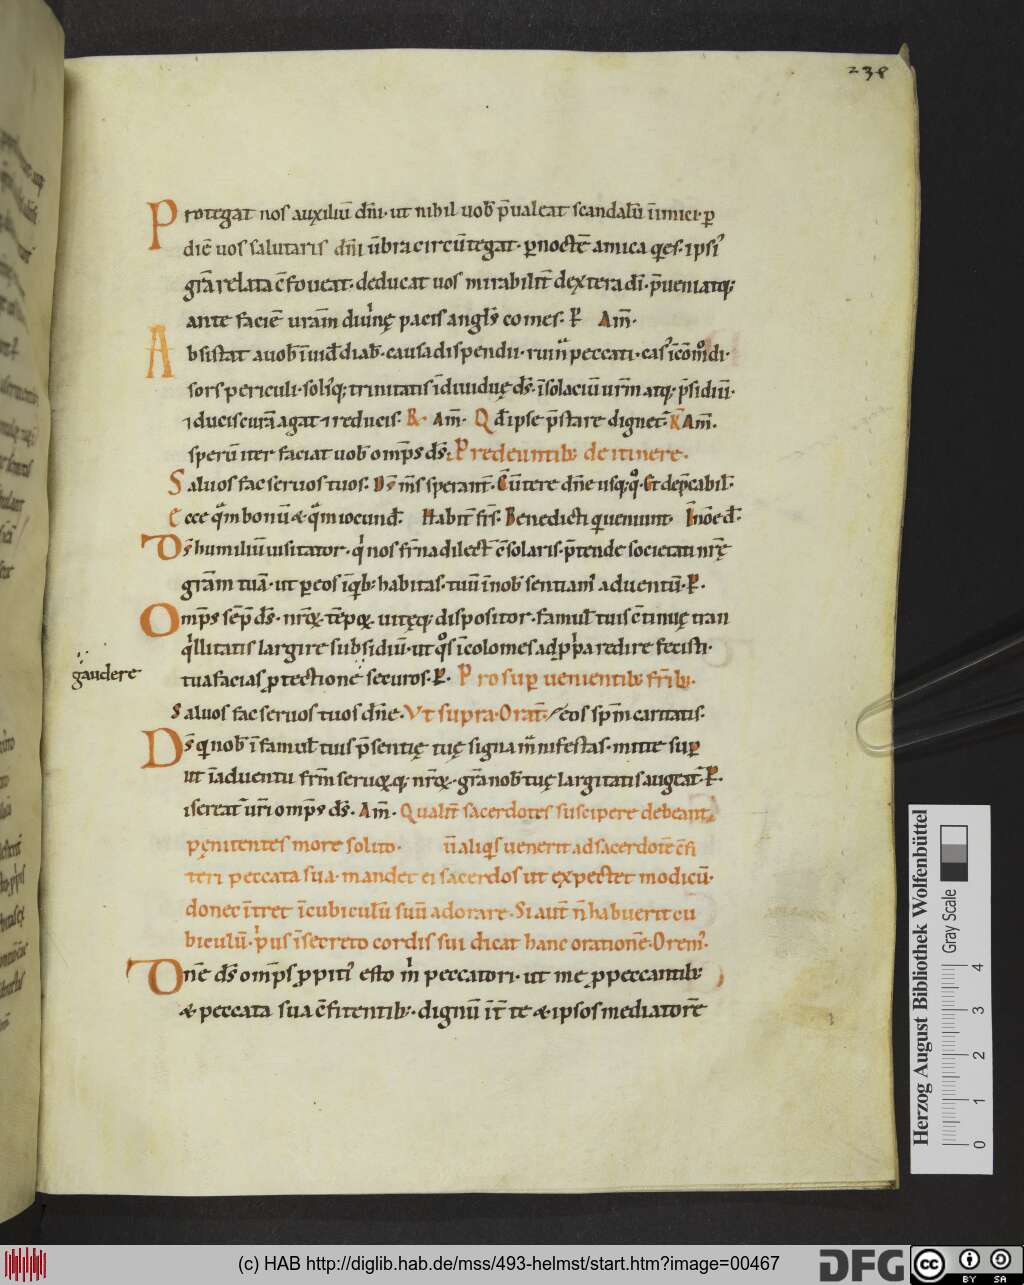 238
Protegat nos auxiliū dn̄i· ut nihil uob̄ p̄ualeat scandalū inimici· ꝑ
diē uos salutaris dn̄i ūbra circūtegat· ꝑ noctē amica qes· ⁊ ipsi᷒
grā relata c̄foueat· deducat uos mirabilit̄ dextera dī· p̄ueniatq;
ante faciē uram diuinę pacis angls̄ comes· Am̄·
Absistat a uob̄ īuid̄ diab̄· causa dispendii· ruina peccati· cas᷒
sors periculi· soliq; trinitatis īdiuiduę ds̄· īsolaciū urm̄ atq; p̄sidiū·
⁊ ducis curā agat ⁊ reducis· R· Am̄· Qd̄ ipse p̄stare dignet̄· Am̄·
sperū iter faciat uob̄ omps̄ ds̄· Pro redeuntib; de itinere·
Saluos fac seruos tuos· Ds̄ ms̄ sperant̄· Cūtere dn̄e usq; qͦ· Et depcabil̄·
Ecce qᵃm bonū & qᵃm iocund̄· Habit̄ frs̄· Benedicti qi ueniunt· In noe d̄·
Ds̄ humiliū uisitator· qi nos frn̄a dilect̄ c̄solaris· p̄tende societati nrę̄
grām tuā· ut ꝑ eos īqb; habitas· tuū īnob̄ sentiam᷒ aduentū· P·
Omps̄ semp̄ ds̄· nrōꝝ tēpoꝝ uitęq; dispositor· famul̄ tuis c̄tinuę tran
qillitatis largire subsidiū· ut qͦs īcolomes ad ꝓpa redire fecisti·
gaudere
tua facias ꝓtectione securos· P· Pro suꝑuenientib; frib;·
Saluos fac seruos tuos dn̄e· Vt supra· Orat̄· eos spm̄ caritatis·
Ds̄ qi nob̄ ī famul̄ tuis p̄sentię tuę signa manifestas· mitte suꝑ
ut īaduentu frm̄ seruoꝝ q; nrōꝝ· grā nob̄ tuę largitatis augeat᷒· P·
isereat᷒ uri omps̄ ds̄· Am̄· Qualit̄ sacerdotes suscipere debeant
pęnitentes more solito· n̄ aliqis uenerit ad sacerdotē c̄fi
teri peccata sua· mandet ei sacerdos ut expectet modicū·
donec ītret ī cubiculū suū adorare· Si aut̄ n̄ habuerit cu
biculū· pius ī secreto cordis sui dicat hanc orationē· Orem᷒·
Dne ds̄ omps̄ ꝓpiti᷒ esto mi peccatori· ut me ꝓ peccantib;
& peccata sua c̄fitentib;· dignū īt̄ te & ipsos mediatorē
Herzog August Bibliothek Wolfenbüttel
Gray Scale
0 1 2 3 4
(c) HAB http://diglib.hab.de/mss/493-helmst/start.htm?image=00467
DFG
cc BY SA